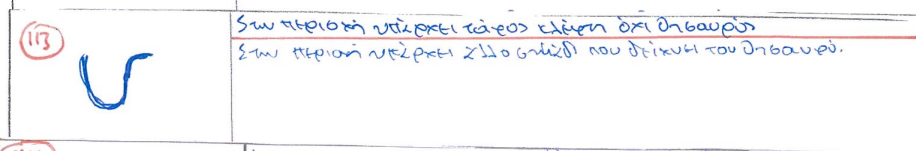 113
Στην περιοχή υπάρχει τάφος κλέφτη όχι θησαυρός
Στην περιοχή υπάρχει άλλο σημάδι που δείχνει του θησαυρό.